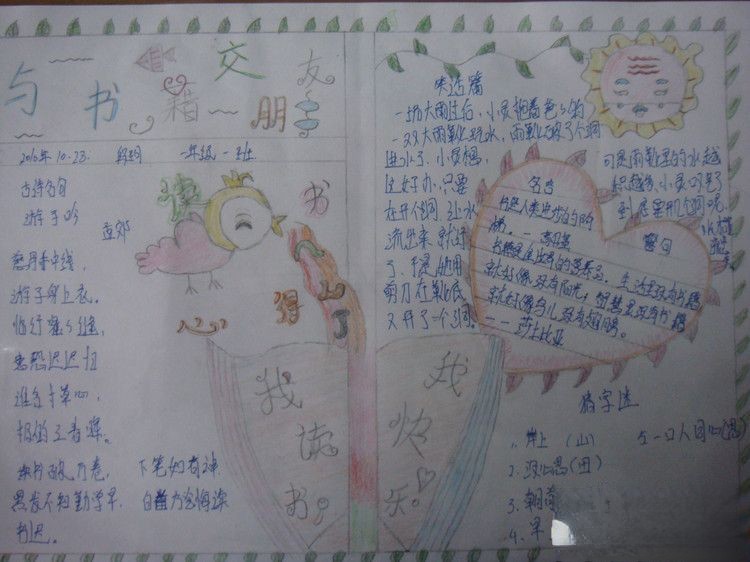 与书籍交朋友
2010年10.23. 一年级一班
古诗名句
游子吟
孟郊
慈母手中线,
游子身上衣。
临行密密缝,
意恐迟迟归
谁言寸草心,
报得三春晖。
读书破万卷, 下笔如有神
黑发不知勤学早, 白首方悔读
书迟。
读书
得
心
我读书,
我快乐。
笑话篇
一场大雨过后,小灵拖着爸爸的
一双大雨靴玩水,雨靴破了个洞
进水了,小灵想,
这好办,只要
在开个洞,让水
流出来就好
了,于是他用
剪刀在靴底
又开了一个洞。
可是雨靴里的水越
积越多,小灵呆了
到底要开几个洞呢,
名言
书是人类进步的
梯。--高尔基
警句
书籍是全世界的营养品。生活里没有书籍
就好像没有阳光;智慧里没有书籍
就好像鸟儿没有翅膀。
--莎士比亚
猜字迷
1. 岸上(山)
2. 没心思(田)
3. 朝前
4. 早
5 一口人